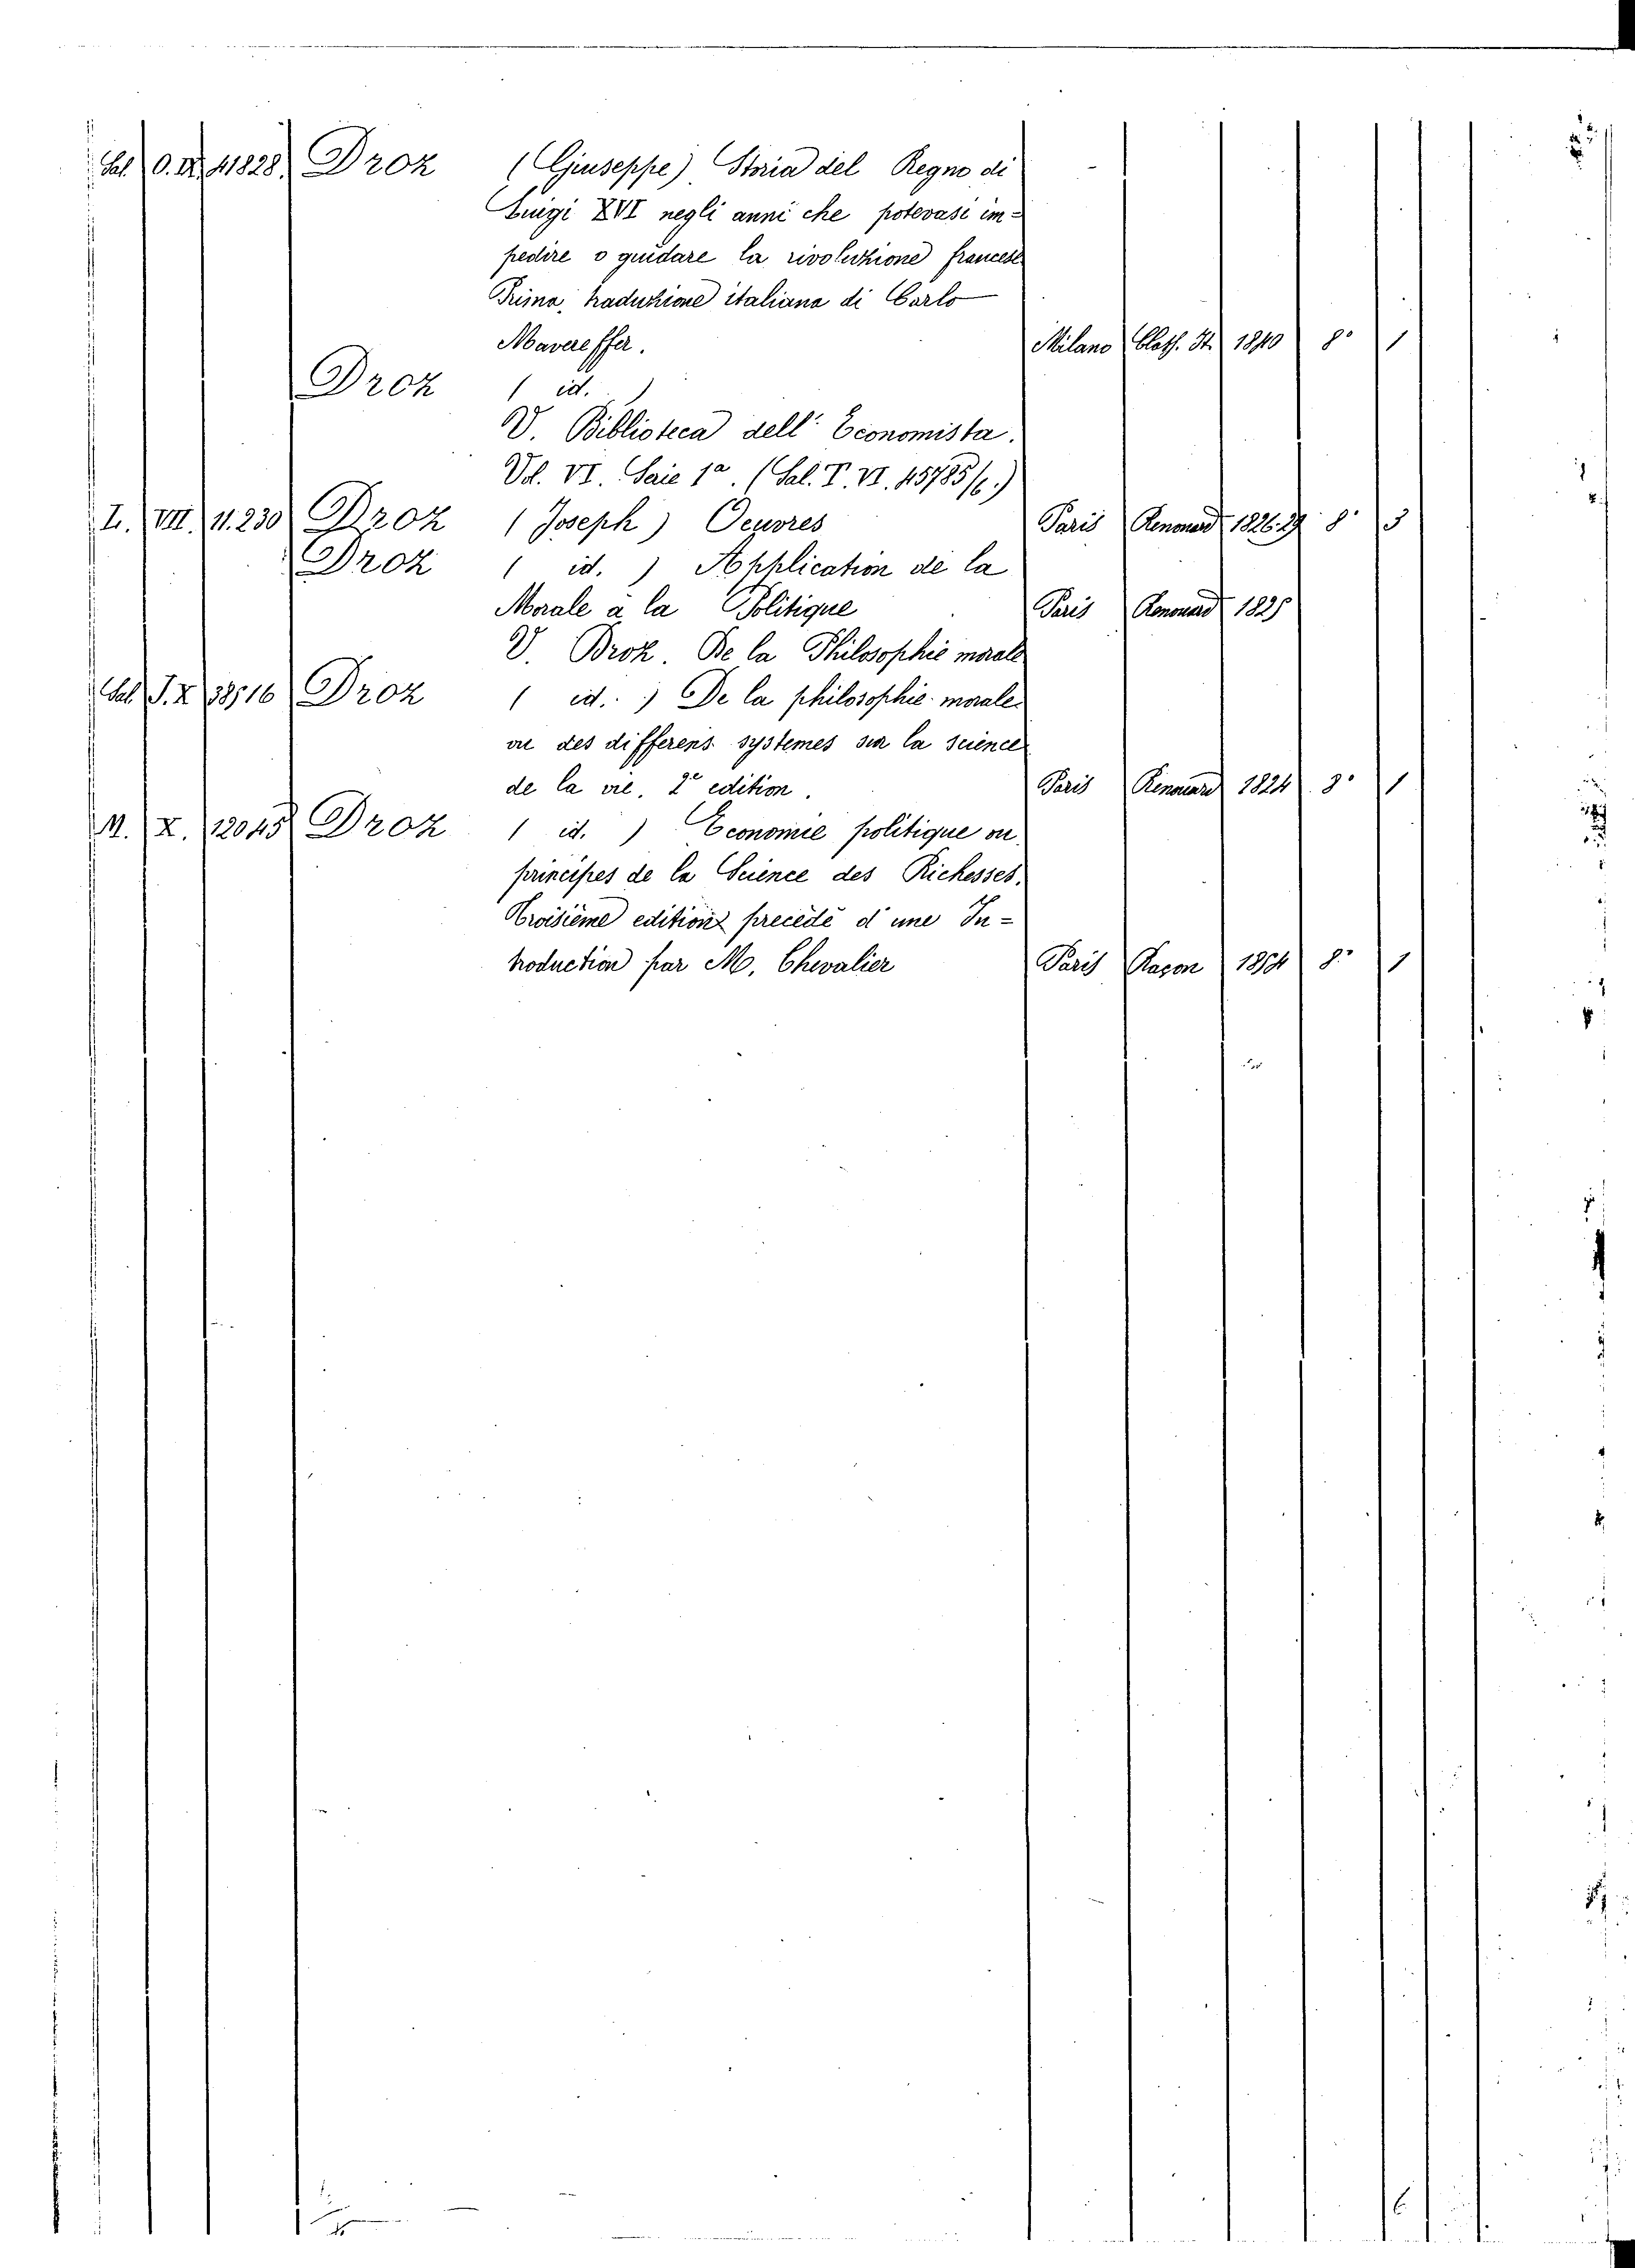 Sal. O. IV. 41828. Droz (Giuseppe) Storia del Regno di
Luigi XVI negli anni che potevasi im=
pedire o guidare la rivoluzione francese
Prima traduzione italiana di Carlo
Mavereffer. Milano Class. It. 1840 8° 1
Droz ( id. )
V. Biblioteca dell' Economista.
Vol. VI. Serie 1a. (Sal. T. VI. 45785/6.)
L. VII. 11.230 Droz (Joseph) Oeuvres Paris Renouard 1826.29 8° 3
Droz ( id. ) Application de la
Morale a la Politique Paris Renouard 1825
V. Droz. De la Philosophie morale
Sal. J. X 38516 Droz ( id. ) De la philosophie morale
ou des differens systemes sur la science
de la vie. 2e edition. Paris Renouard 1824 8° 1
M. X. 12045 Droz ( id. ) Economie politique ou
principes de la Science des Richesses.
Troisième edition precédé d'une In=
troduction par M. Chevalier Paris Raçon 1854 8° 1